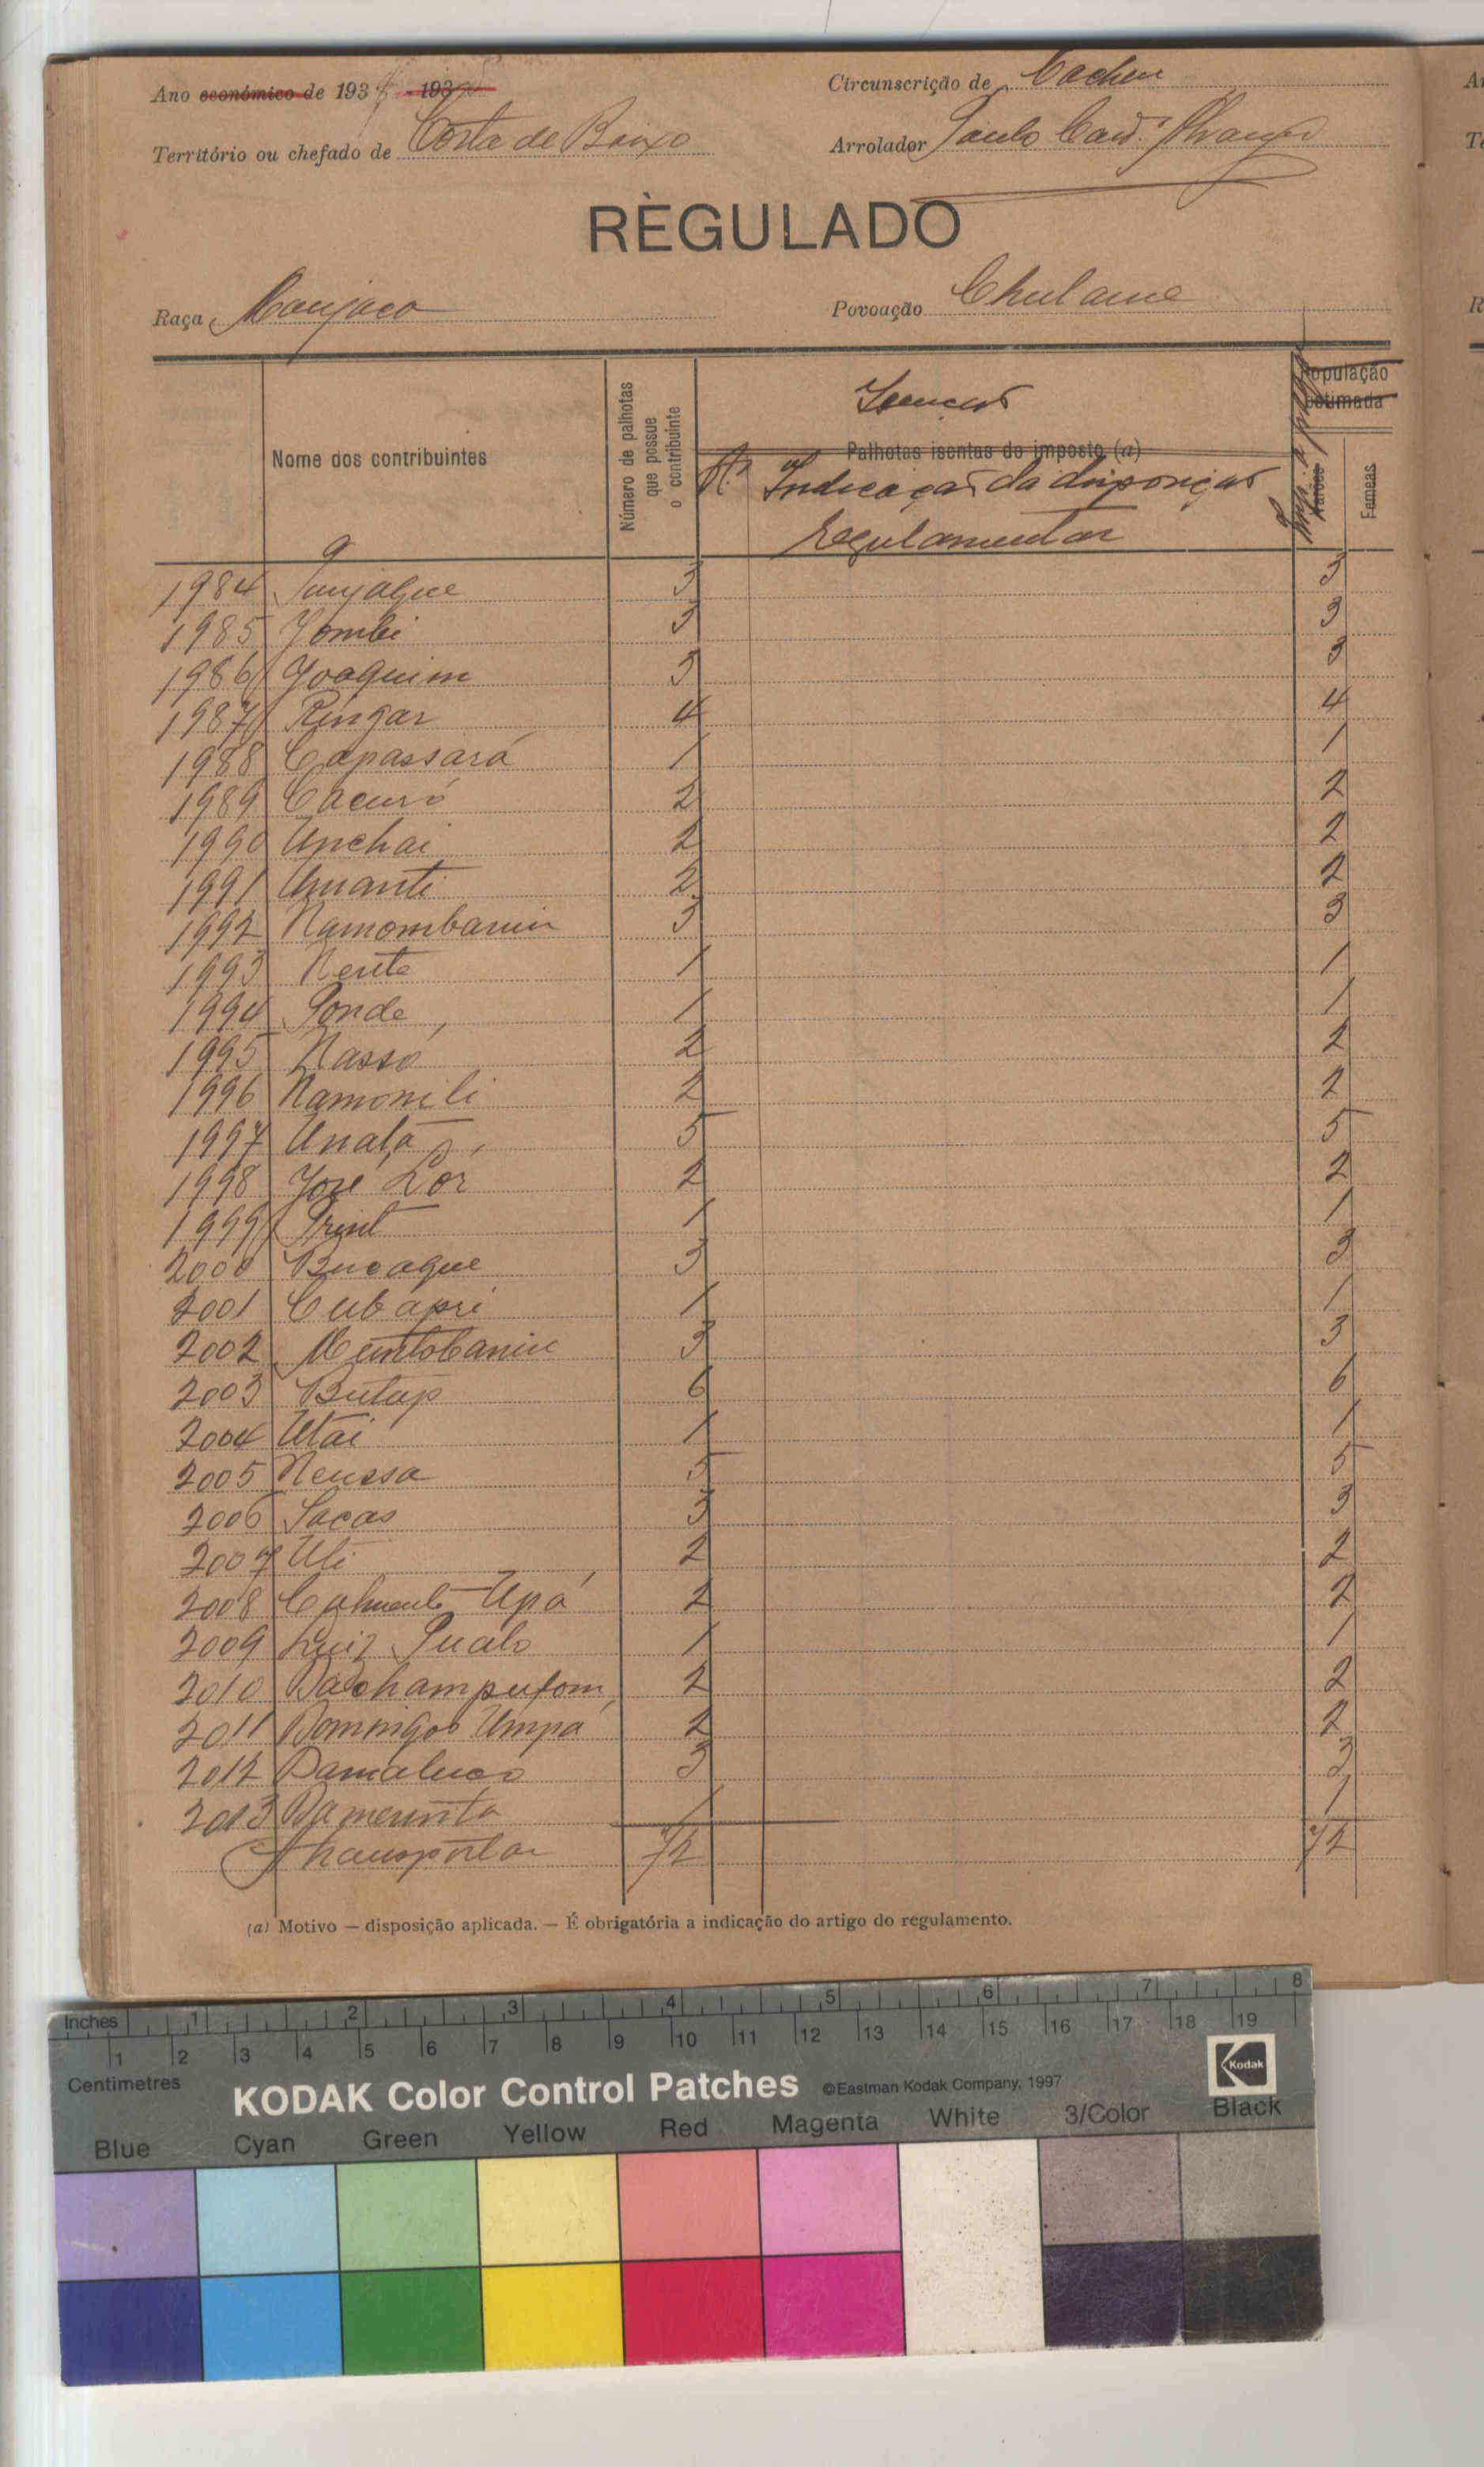 Ano económico de 193
Circunscrição de Cacheu
Território ou chefado de Costa de Baixo
Arrolador Paulo
RÈGULADO
Raça Manjaco
Povoação Chulame
Nome dos contribuintes
Número de palhotas que possue o contribuinte
Isenções
Palhotas isentas do imposto (a)
Nº Indicação da disposição
regulamentar
População
estimada
Varões
Femeas
1984 3 3
1985 Jombi 3 3
1986 Joaquim 3 3
1987 Ringar 4 4
1988 Capassará 1 1
1989 Cacuró 2 2
1990 Unchai 2 2
1991 Quanti 2 2
1992 Namombanin 3 3
1993 Nerite 1 1
1994 Ponde 1 1
1995 Nassó 2 2
1996 Namomili 2 2
1997 Unatá 5 5
1998 José Lór 2 2
1999 Print 1 1
2000 Bucaque 3 3
2001 Cubapri 1 1
2002 3 3
2003 Butap 6 6
2004 Utai 1 1
2005 Neussa 5 5
2006 Sacas 3 3
2007 Uti 2 2
2008 Upá 2 2
2009 Luiz 1 1
2010 2 2
2011 Domingos Umpá 2 2
2012 Damaluco 3 3
2013 1 1
A transportar 72 72
(a) Motivo — disposição aplicada. — É obrigatória a indicação do artigo do regulamento.
Inches 1 2 3 4 5 6 7 8
1 2 3 4 5 6 7 8 9 10 11 12 13 14 15 16 17 18 19
Centimetres
KODAK Color Control Patches ©Eastman Kodak Company, 1997
Kodak
Blue Cyan Green Yellow Red Magenta White 3/Color Black